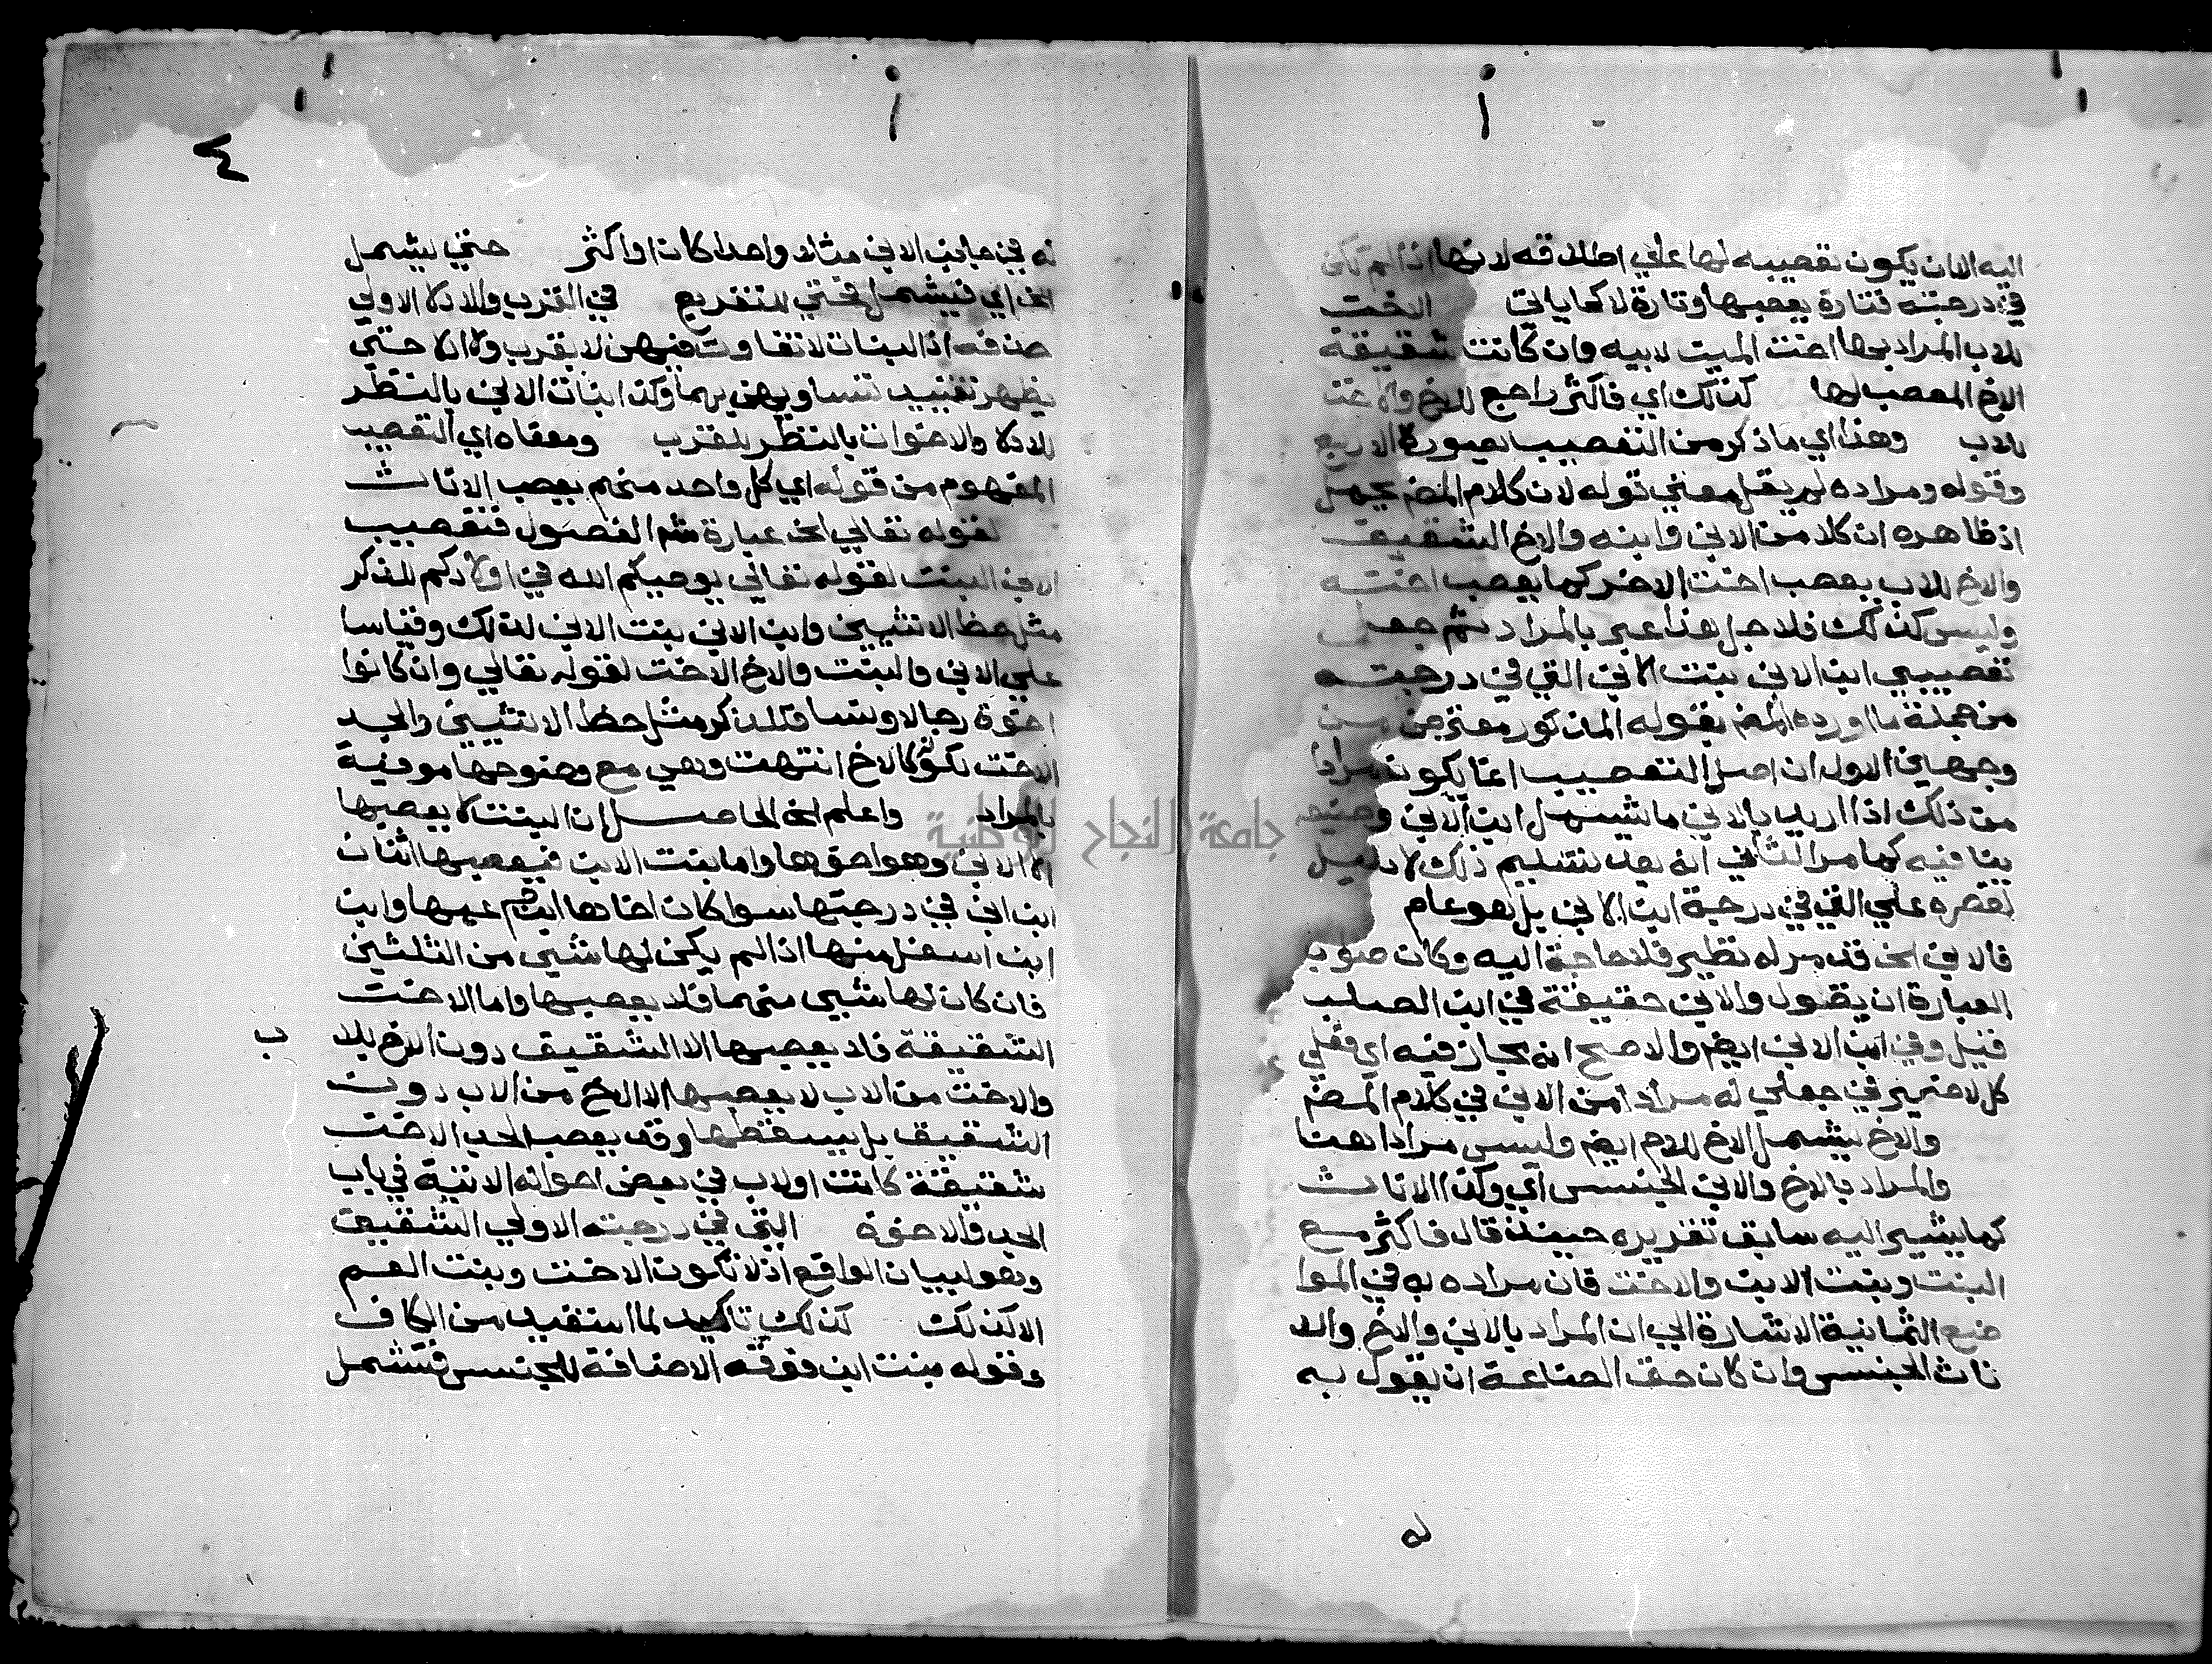 اليه الا ان يكون تعصيبه لها علي اطلاقه لانها اذا لم تكن
في درجته فتارة يعصبها وتارة لا كما ياتي الاخت
للاب المراد بها اخت الميت لابيه وان كانت شقيقة
الاخ المعصب لها كذلك اي فاكثر راجع للاخ والاخت
للاب وهذا اي ما ذكر من التعصيب بصورة الاربع
وقوله ومراده لم يقل معني قوله لان كلام المص يحمل
اذ ظاهره ان كلا من الابن وابنه والاخ الشقيق
والاخ للاب يعصب اخت الاخر كما يعصب اخته
وليس كذلك فلاجل هذا عبر بالمراد ثم جعل
تعصيبي ابن الابن بنت الابن التي في درجته
من جملة ما اورده المص بقوله المذكور معترض من
وجهين الاول ان اصل التعصيب انما يكون مرادا
من ذلك اذا اريد بالابن ما يشمل ابن الابن وحينئذ
ينافيه كما مر الثاني انه بعد تسليم ذلك لا دليل
لقصره علي التي في درجة ابن الابن بل هو عام
فالابن الخ قد مر له نظير فلا حاجة اليه وكان صواب
العبارة ان يقول والابن حقيقة في ابن الصلب
قيل وفي ابن الابن ايضم والاصح انه مجاز فيه اي فعلي
كل لا ضير في جعلي له مرادا من الابن في كلام المص
والاخ يشمل الاخ للام ايضم وليس مرادا هنا
والمراد بالاخ والابن الجنس اي وكذا الاناث
كما يشير اليه سابق تقريره حينئذ قال فاكثر مع
البنت وبنت الابن والاخت فان مراده به في الموا
ضع الثمانية الاشارة الي ان المراد بالابن والاخ والا
ناث الجنس وان كان حق الصناعة ان يقول به
له
٤
له في جانب الابن مثلا واحدا كان او اكثر حتي يشمل
الخ اي فيشمل فحتي للتفريع في القرب والادلا الاولي
حذفه اذ البنات لا تفاوت فيهن لا بقرب ولا ادلا حتي
يظهر تقييد تساويهن بهما وكذا بنات الابن بالنظر
للادلا والاخوات بالنظر للقرب ومعناه اي التعصيب
المفهوم من قوله اي كل واحد منهم يعصب الاناث
لقوله تعالي الخ عبارة شم الفصول فتعصيب
الابن البنت لقوله تعالي يوصيكم الله في اولادكم للذكر
مثل حظ الانثيين وابن الابن بنت الابن لذلك وقياسا
علي الابن والبنت والاخ الاخت لقوله تعالي وان كانوا
اخوة رجالا ونسا فللذكر مثل حظ الانثيين والجد
الاخت لكونه كالاخ انتهت وهي مع وضوحها موفية
بالمراد واعلم الخ الحاصل ان البنت لا يعصبها
الا الابن وهو اخوها واما بنت الابن فيعصبها اثنان
ابن ابن في درجتها سوا كان اخاها ام ابن عمها وابن
ابن اسفل منها اذا لم يكن لها شيي من الثلثين
فان كان لها شيي منهما فلا يعصبها واما الاخت
الشقيقة فلا يعصبها الا الشقيق دون الاخ للاب
والاخت من الاب لا يعصبها الا الاخ من الاب دون
الشقيق بل يسقطها وقد يعصب الجد الاخت
شقيقة كانت او لاب في بعض احواله الاتية في باب
الجد والاخوة التي في درجته الاولي الشقيق
وهو لبيان الواقع اذ لا تكون الاخت وبنت العم
الا كذلك كذلك تاكيد لما استفيد من الكاف
وقوله بنت ابن فوقه الاضافة للجنس فتشمل